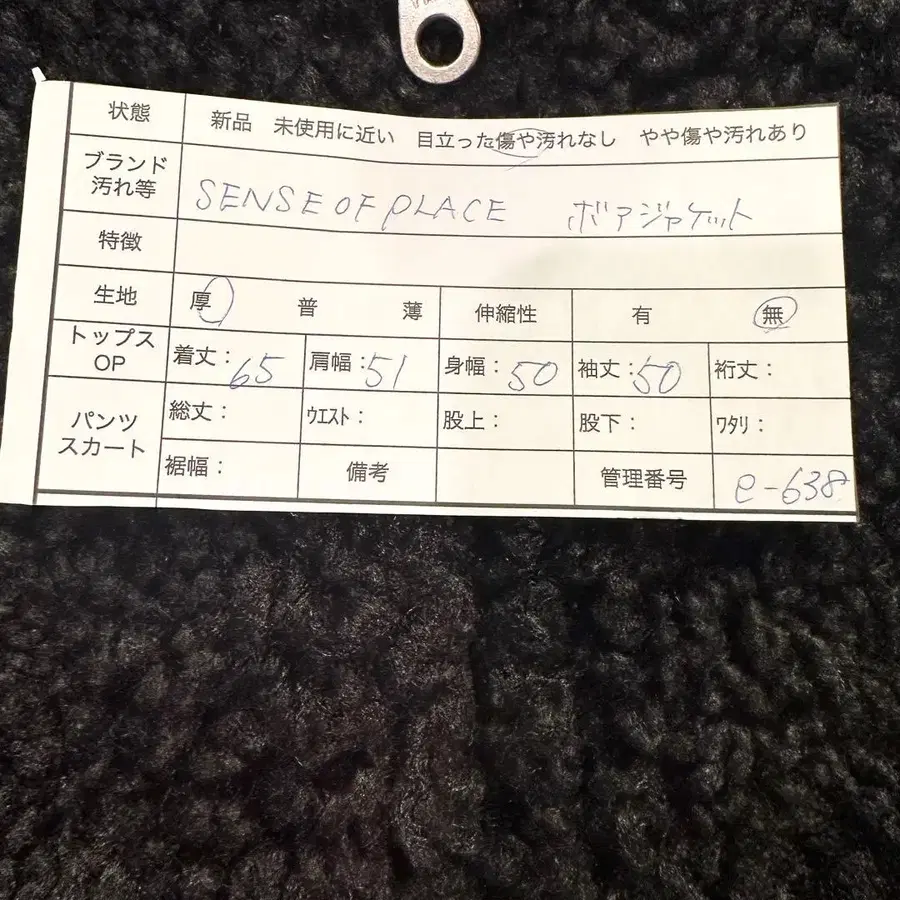 状態 新品 未使用に近い 目立った傷や汚れなし やや傷や汚れあり
ブランド
汚れ等 SENSE OF PLACE ボアジャケット
特徴
生地 厚 普 薄 伸縮性 有 無
トップス
OP 着丈：65 肩幅：51 身幅：50 袖丈：50 裄丈：
パンツ
スカート 総丈： ｳｴｽﾄ： 股上： 股下： ﾜﾀﾘ：
裾幅： 備考 管理番号 e-638